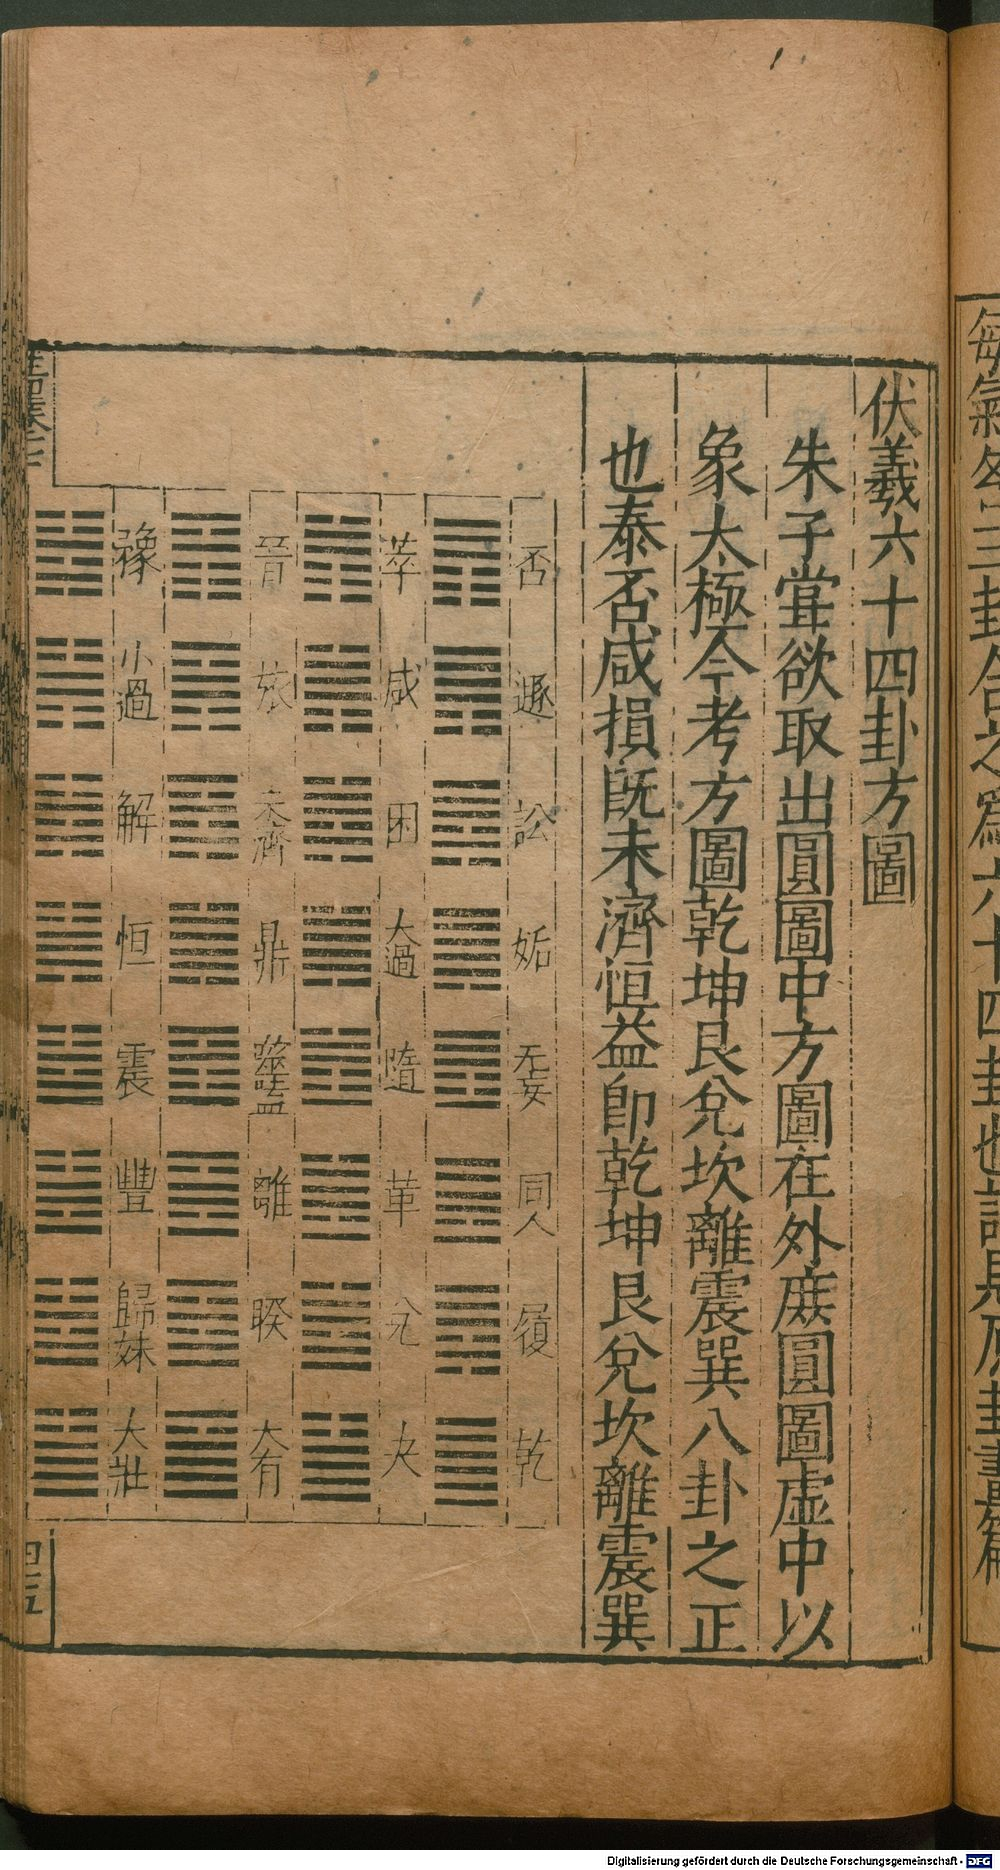 伏羲六十四卦方圖
朱子嘗欲取出圓圖中方圖在外庶圓圖虛中以
象太極今考方圖乾坤艮兌坎離震巽八卦之正
也泰否咸損旣未濟恒益卽乾坤艮兌坎離震巽
否 遯 訟 姤 无妄 同人 履 乾
萃 咸 困 大過 隨 革 兌 夬
晉 旅 未濟 鼎 噬嗑 離 睽 大有
豫 小過 解 恒 震 豐 歸妹 大壯
四十五
三卦合之爲六十四卦也
Digitalisierung gefördert durch die Deutsche Forschungsgemeinschaft - DFG